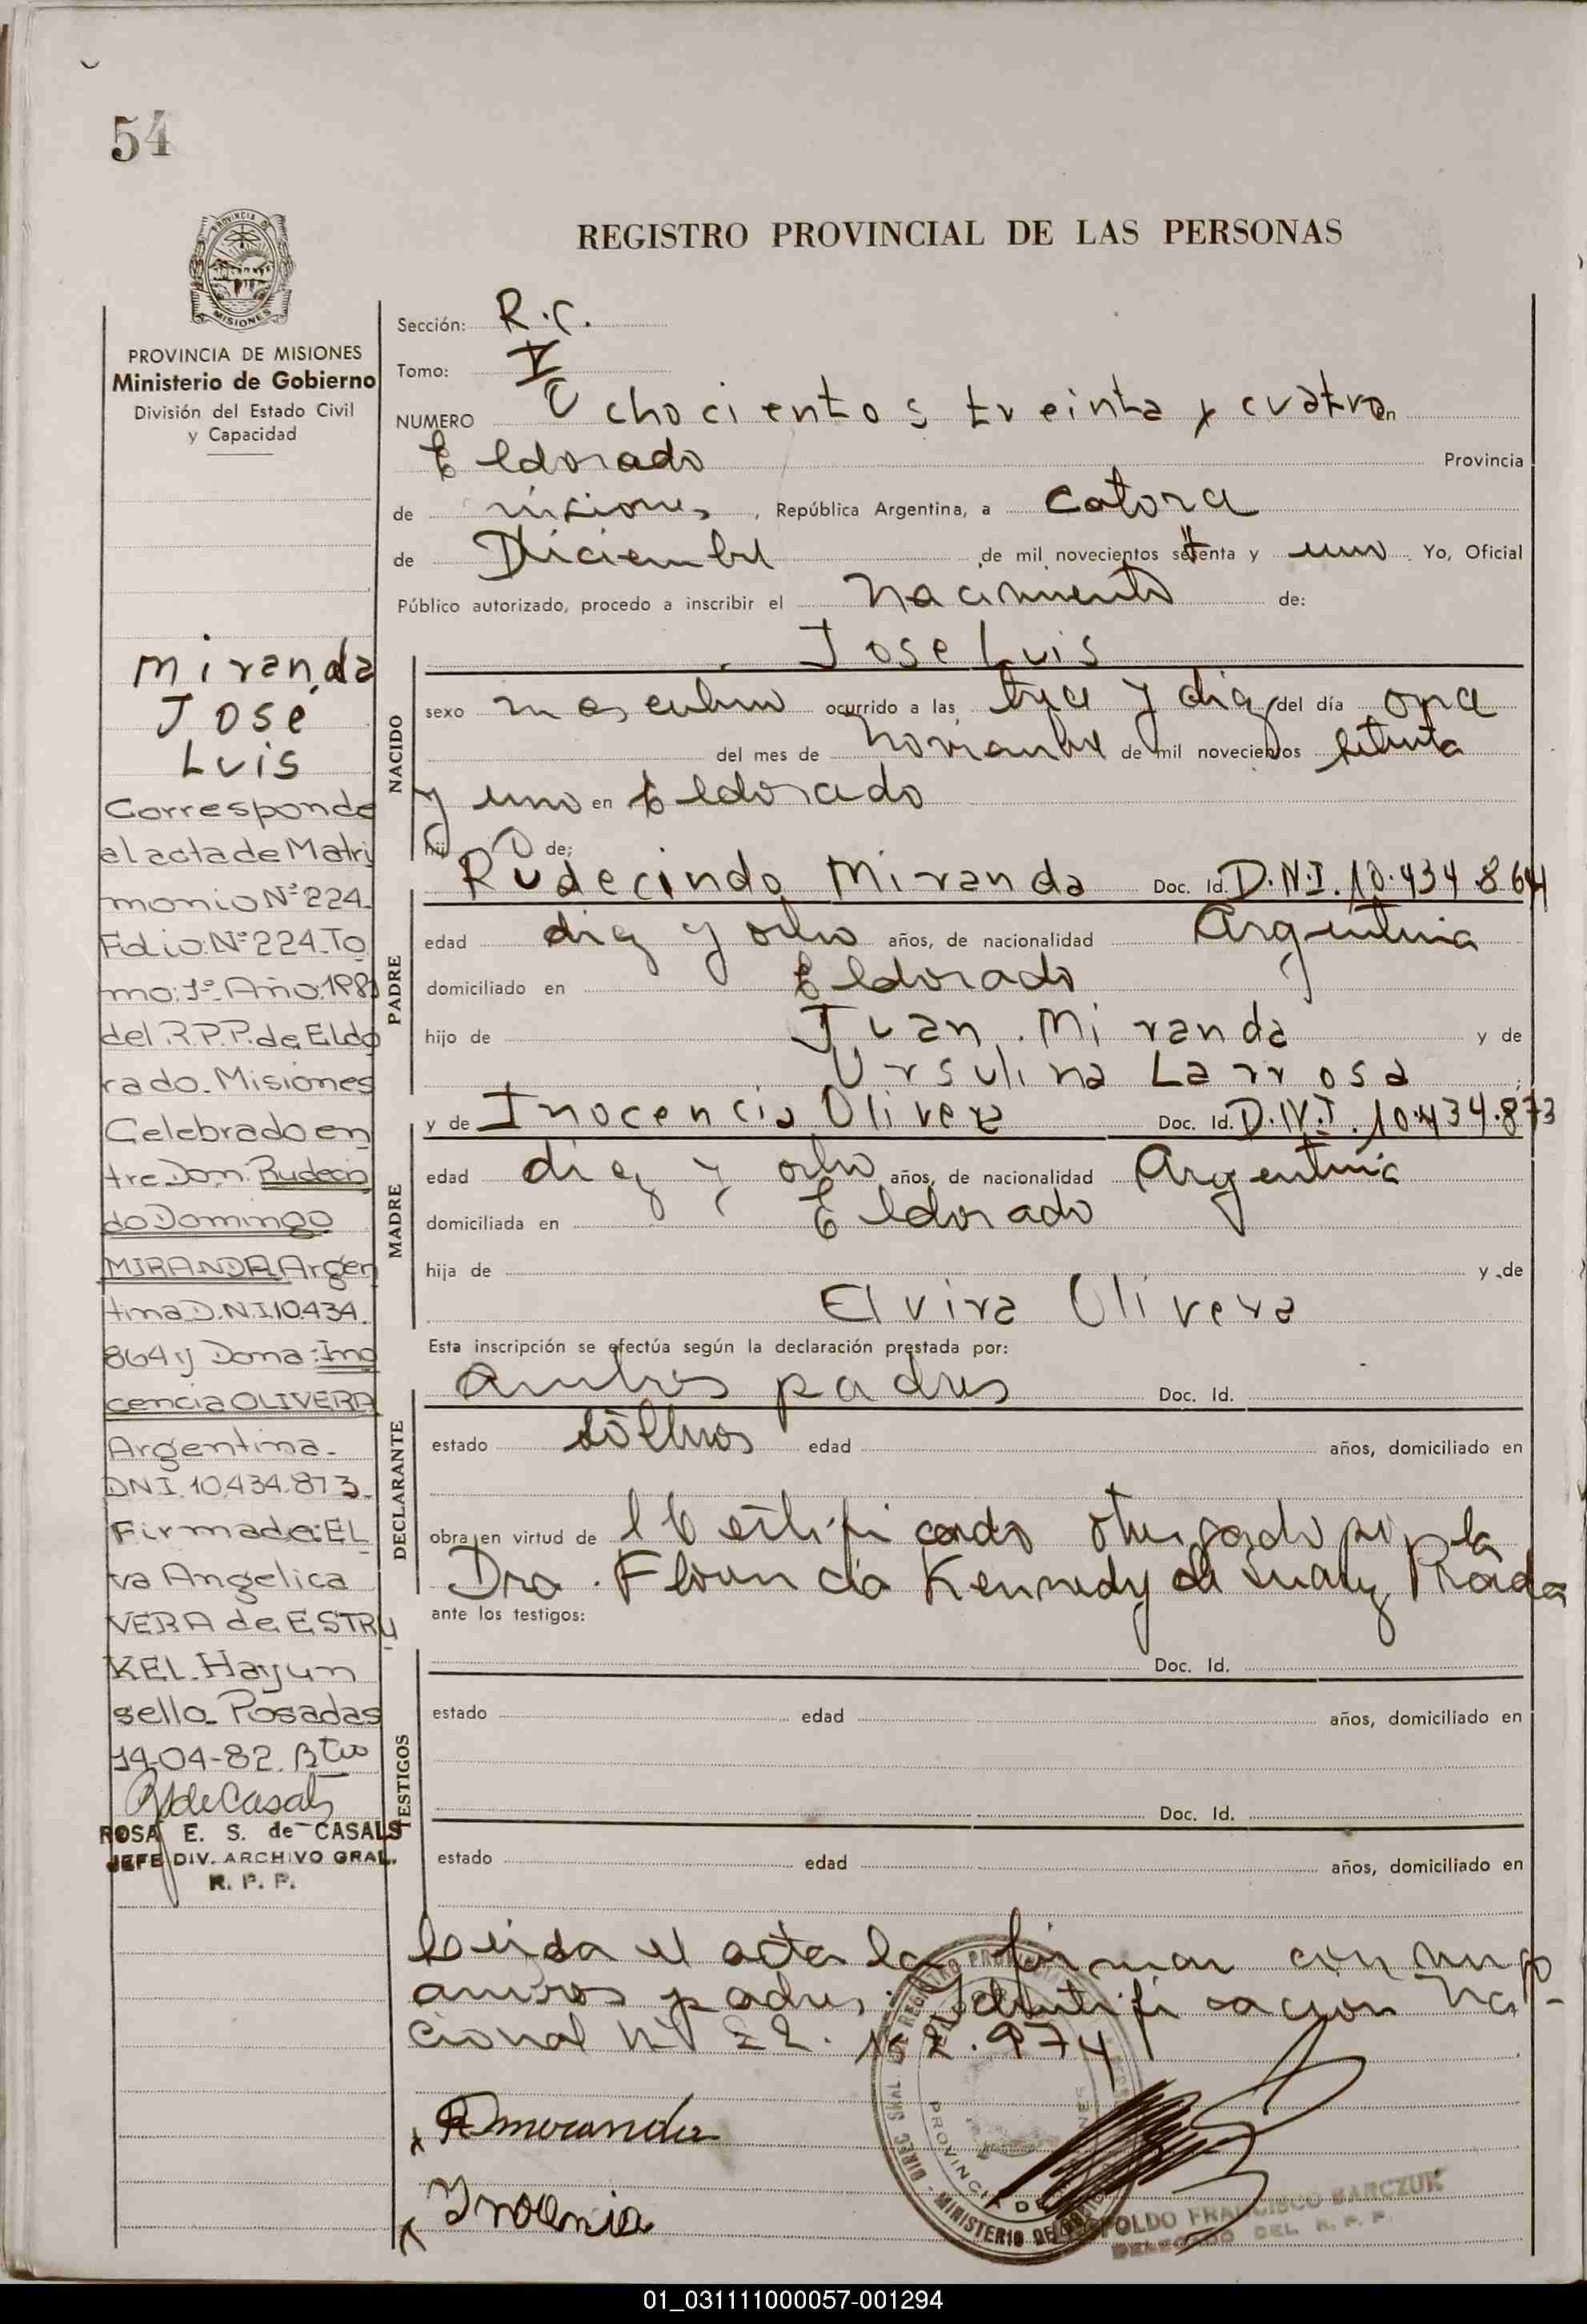 54
REGISTRO PROVINCIAL DE LAS PERSONAS
PROVINCIA DE MISIONES
MISIONES
PROVINCIA DE MISIONES
Ministerio de Gobierno
División del Estado Civil
y Capacidad
Miranda
José
Luis
Corresponde
al acta de Matri
monio Nº 224.
Folio: Nº 224. To
mo: 1º. Año: 198
del R.P.P. de Eldo
rado. Misiones
Celebrado en
tre Don: Rudecin
do Domingo
MIRANDA Argen
tina D.N.I. 10.434.
864 y Dona: Ino
cencia OLIVERA
Argentina.
DNI. 10.434.873.
Firmado: EL
va Angelica
VERA de ESTRU
KEL. Hay un
sello. Posadas
14-04-82.
ROSA E. S. de CASALS
JEFE DIV. ARCHIVO GRAL.
R. P. P.
Sección: R.C.
Tomo: V
NUMERO Ochocientos treinta y cuatro en
Eldorado Provincia
de misiones, República Argentina, a catorce
de Diciembre de mil novecientos setenta y uno Yo, Oficial
Público autorizado, procedo a inscribir el nacimiento de:
Jose Luis
NACIDO
sexo masculino ocurrido a las trece y diez del día once
del mes de noviembre de mil novecientos setenta
y uno en Eldorado
hijo de:
Rudecindo Miranda Doc. Id. D.N.I. 10.434.864
PADRE
edad diez y ocho años, de nacionalidad Argentina
domiciliado en Eldorado
hijo de Juan Miranda y de
Ursulina Larrosa
y de Inocencia Olivera Doc. Id. D.N.I. 10.434.873
MADRE
edad diez y ocho años, de nacionalidad Argentina
domiciliada en Eldorado
hija de y de
Elvira Olivera
Esta inscripción se efectúa según la declaración prestada por:
ambos padres Doc. Id.
DECLARANTE
estado solteros edad años, domiciliado en
obra en virtud de certificado otorgado por la
Dra. Florencia Kennedy de Suarez Prada
ante los testigos:
Doc. Id.
TESTIGOS
estado edad años, domiciliado en
Doc. Id.
estado edad años, domiciliado en
Leida el acta la firman conmigo
ambos padres. Identificacion Na-
cional Nº 22.152.974
RMiranda
Inocencia
REGISTRO PROVINCIAL
PROVINCIA DE MISIONES
MINISTERIO DE
LEOPOLDO FRANCISCO MARCZUK
DELEGADO DEL R. P. P.
01_031111000057-001294